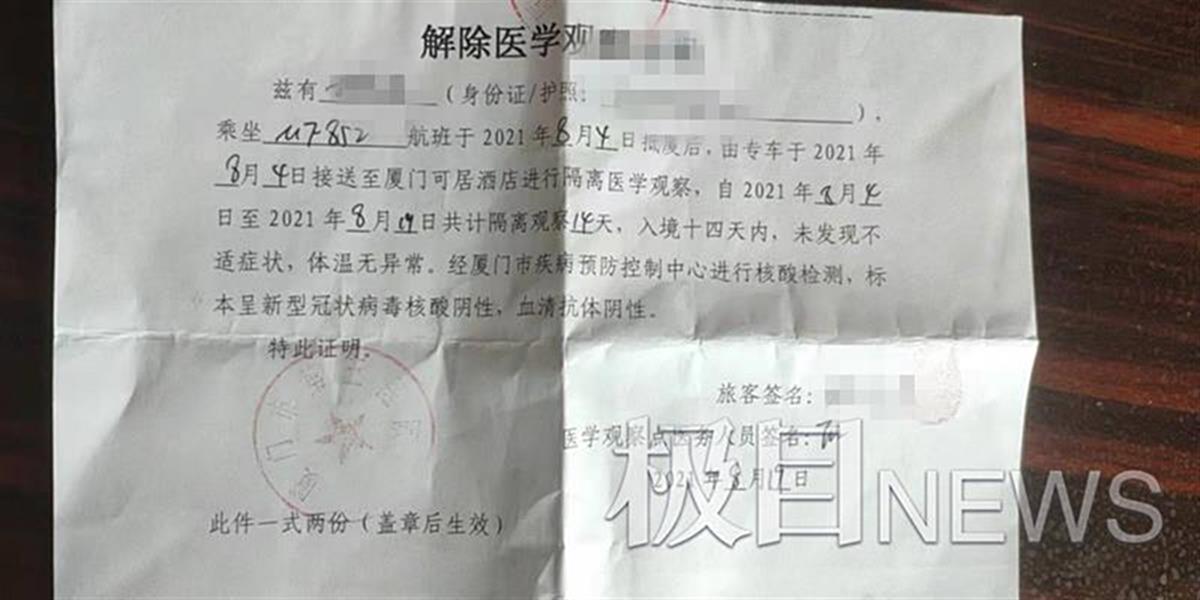 解除医学观
兹有 （身份证/护照： ），
乘坐 MF852 航班于 2021 年 8 月 4 日抵厦后，由专车于 2021 年
8 月 4 日接送至厦门可居酒店进行隔离医学观察，自 2021 年 8 月 4
日至 2021 年 8 月 日共计隔离观察 14 天，入境十四天内，未发现不
适症状，体温无异常。经厦门市疾病预防控制中心进行核酸检测，标
本呈新型冠状病毒核酸阴性，血清抗体阴性。
特此证明。
旅客签名：
医学观察点医务人员签名：
2021 年 8 月 日
此件一式两份（盖章后生效）
极目NEWS